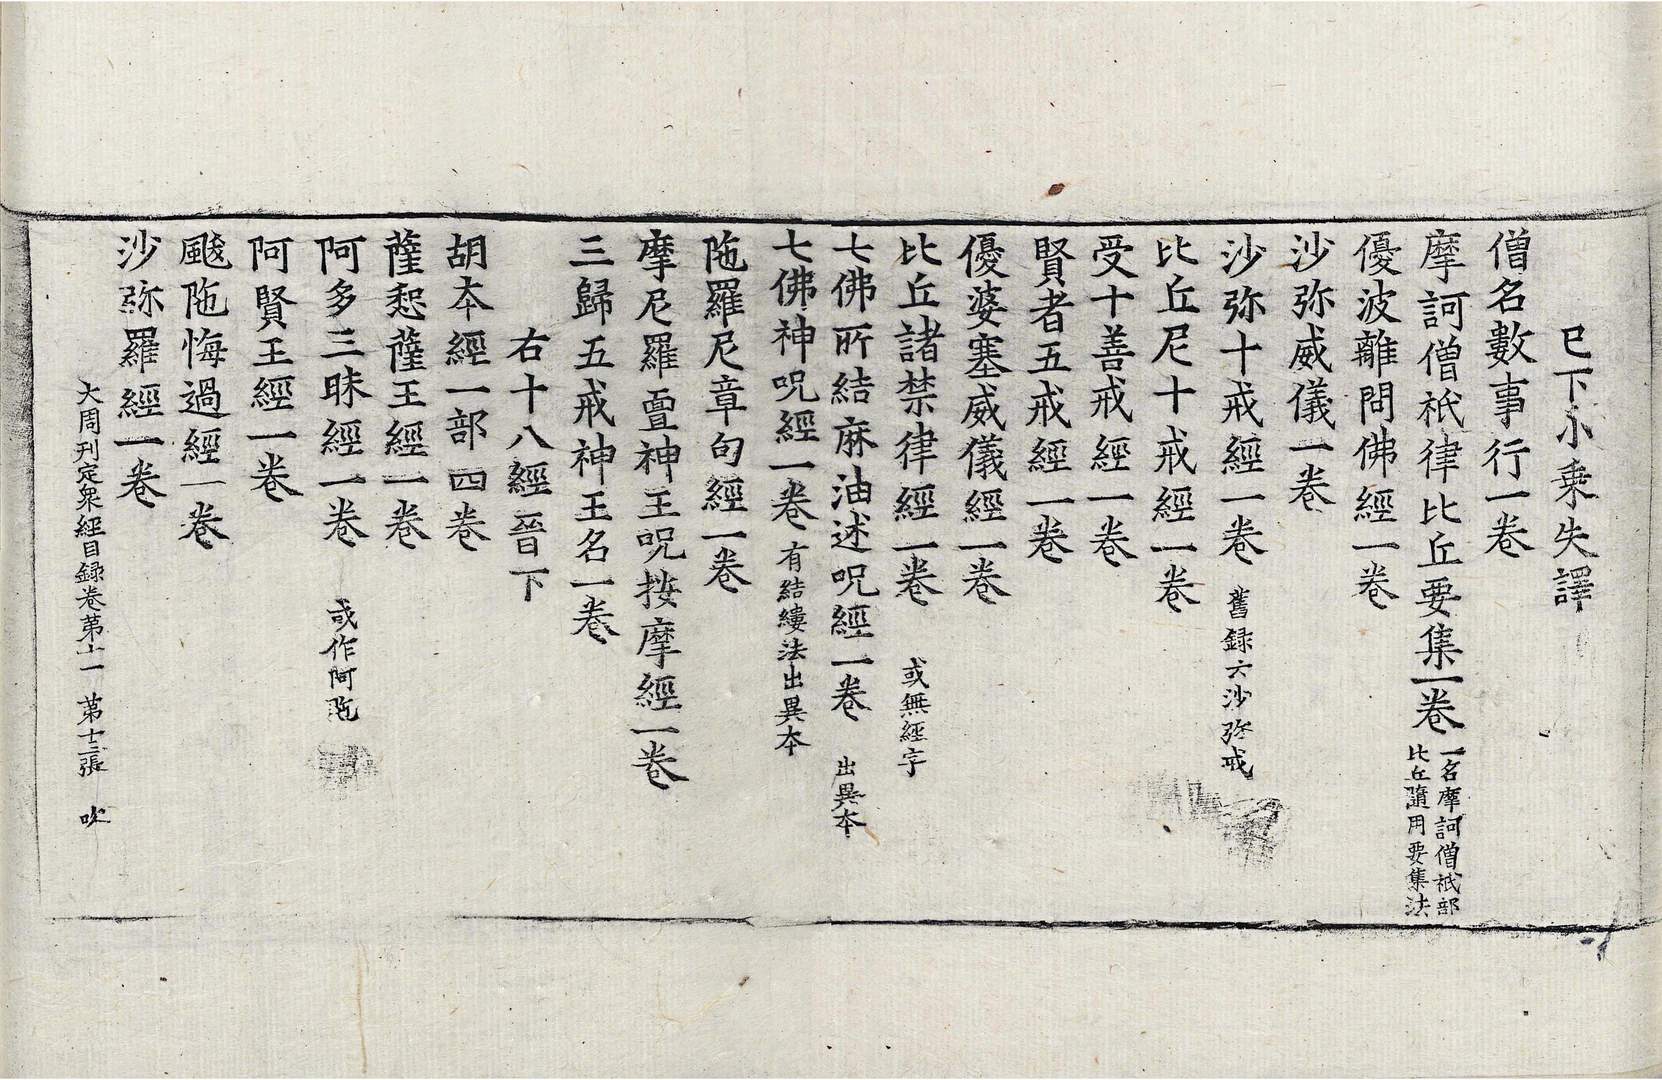 已下小乗失譯
僧名數事行一卷
摩訶僧祇律比丘要集一卷 一名摩訶僧祇部比丘隨用要集法
優波離問佛經一卷
沙弥威儀一卷
沙弥十戒經一卷 舊録云沙弥戒
比丘尼十戒經一卷
受十善戒經一卷
賢者五戒經一卷
優婆塞威儀經一卷
比丘諸禁律經一卷 或無經字
七佛所結麻油述呪經一卷 出異本
七佛神呪經一卷 有結縷法出異本
陁羅尼章句經一卷
摩尼羅亶神王呪按摩經一卷
三歸五戒神王名一卷
右十八經晉下
胡本經一部四卷
薩惒薩王經一卷
阿多三昧經一卷 或作阿陁
阿賢王經一卷
颰陁悔過經一卷
沙弥羅經一卷
大周刊定衆經目録卷苐十一 苐十二張 吹